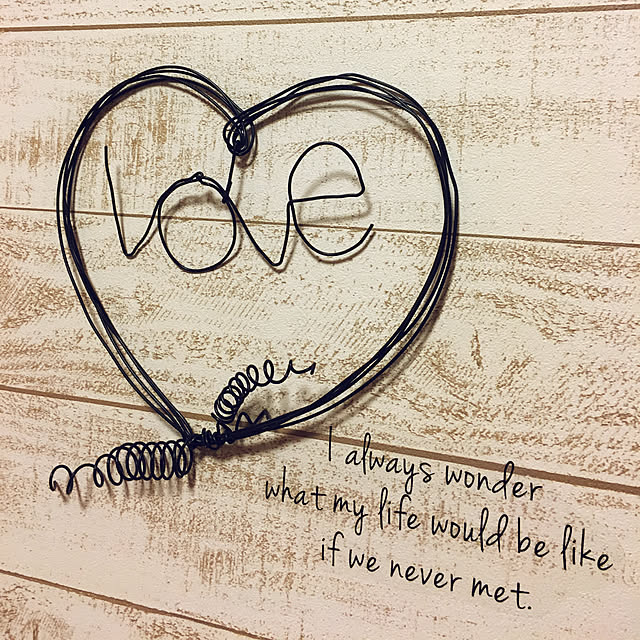 love
I always wonder
what my life would be like
if we never met.